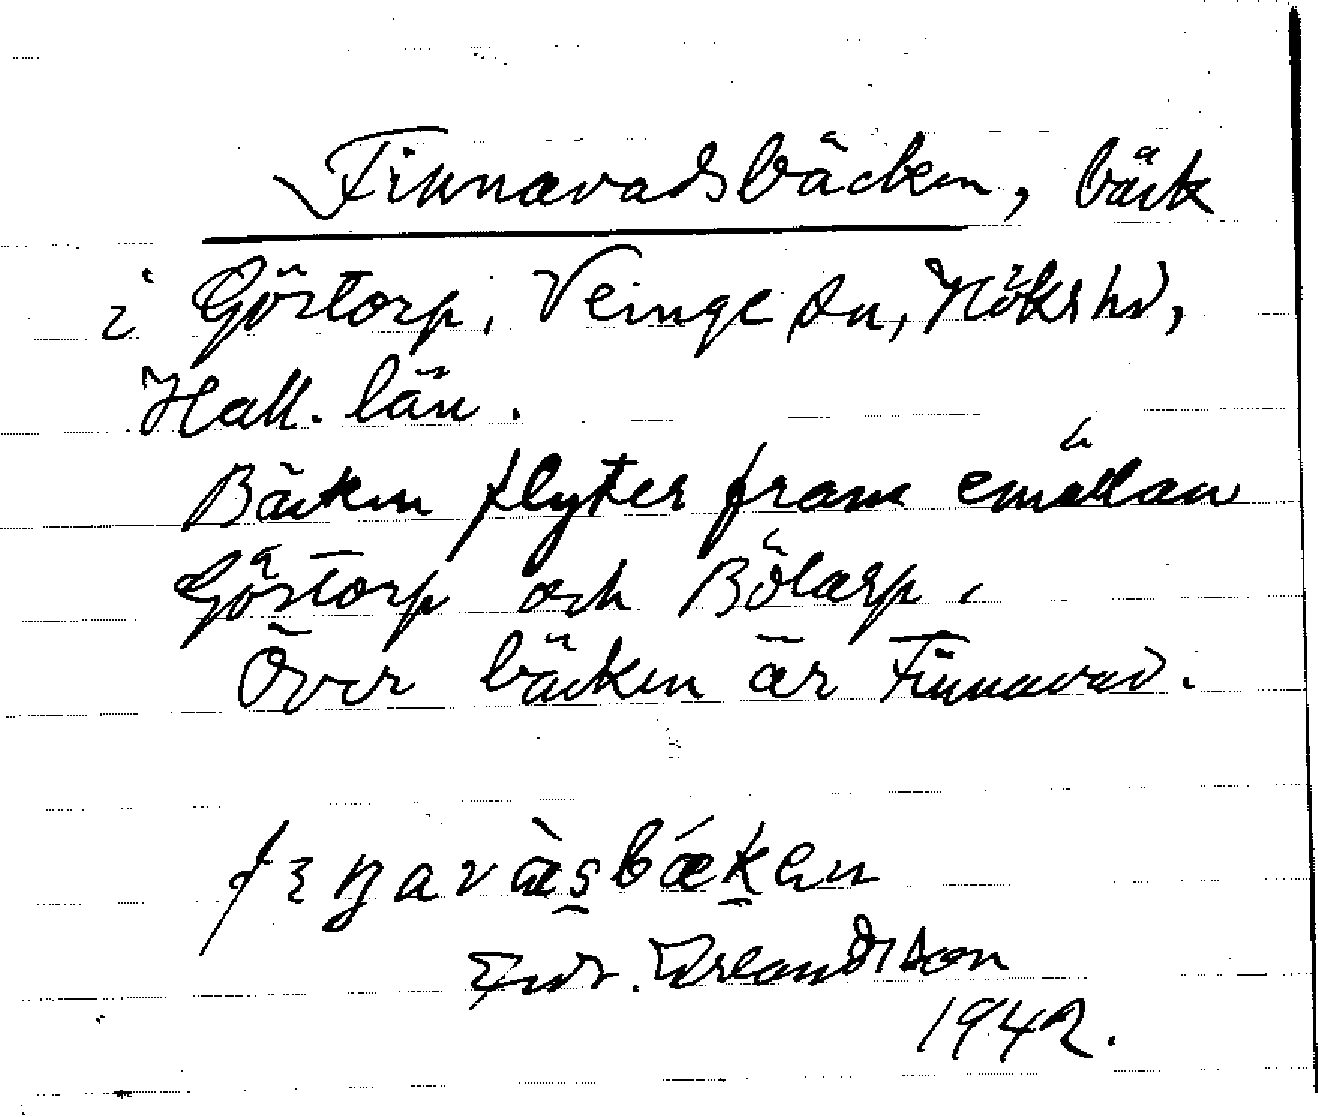 Finnavadsbäcken, bäck
i Göstorp, Veinge sn, Höks hd,
Hall. län.
Bäcken flyter fram emellan
Göstorp och Bölarp.
Över bäcken är Finnavad.
Fredr. Erlandsson
1942.